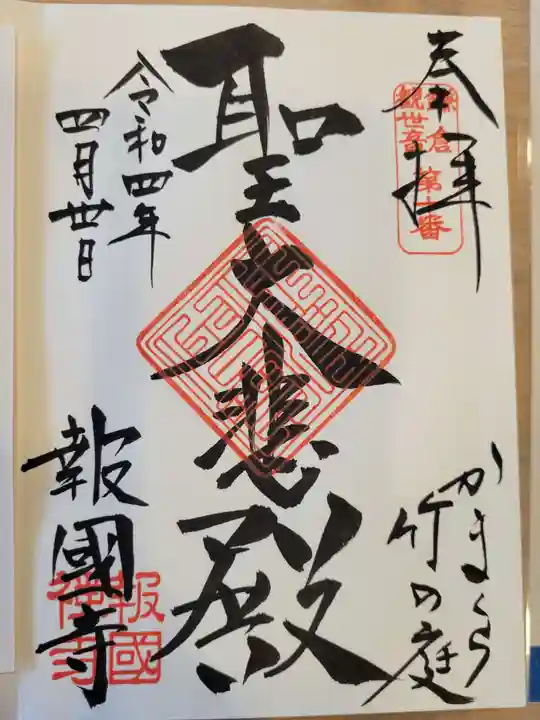 奉拝
鎌倉
観世音
第十番
かまくら
竹の庭
聖大悲殿
令和四年
四月卅日
報國寺
報國
禅寺